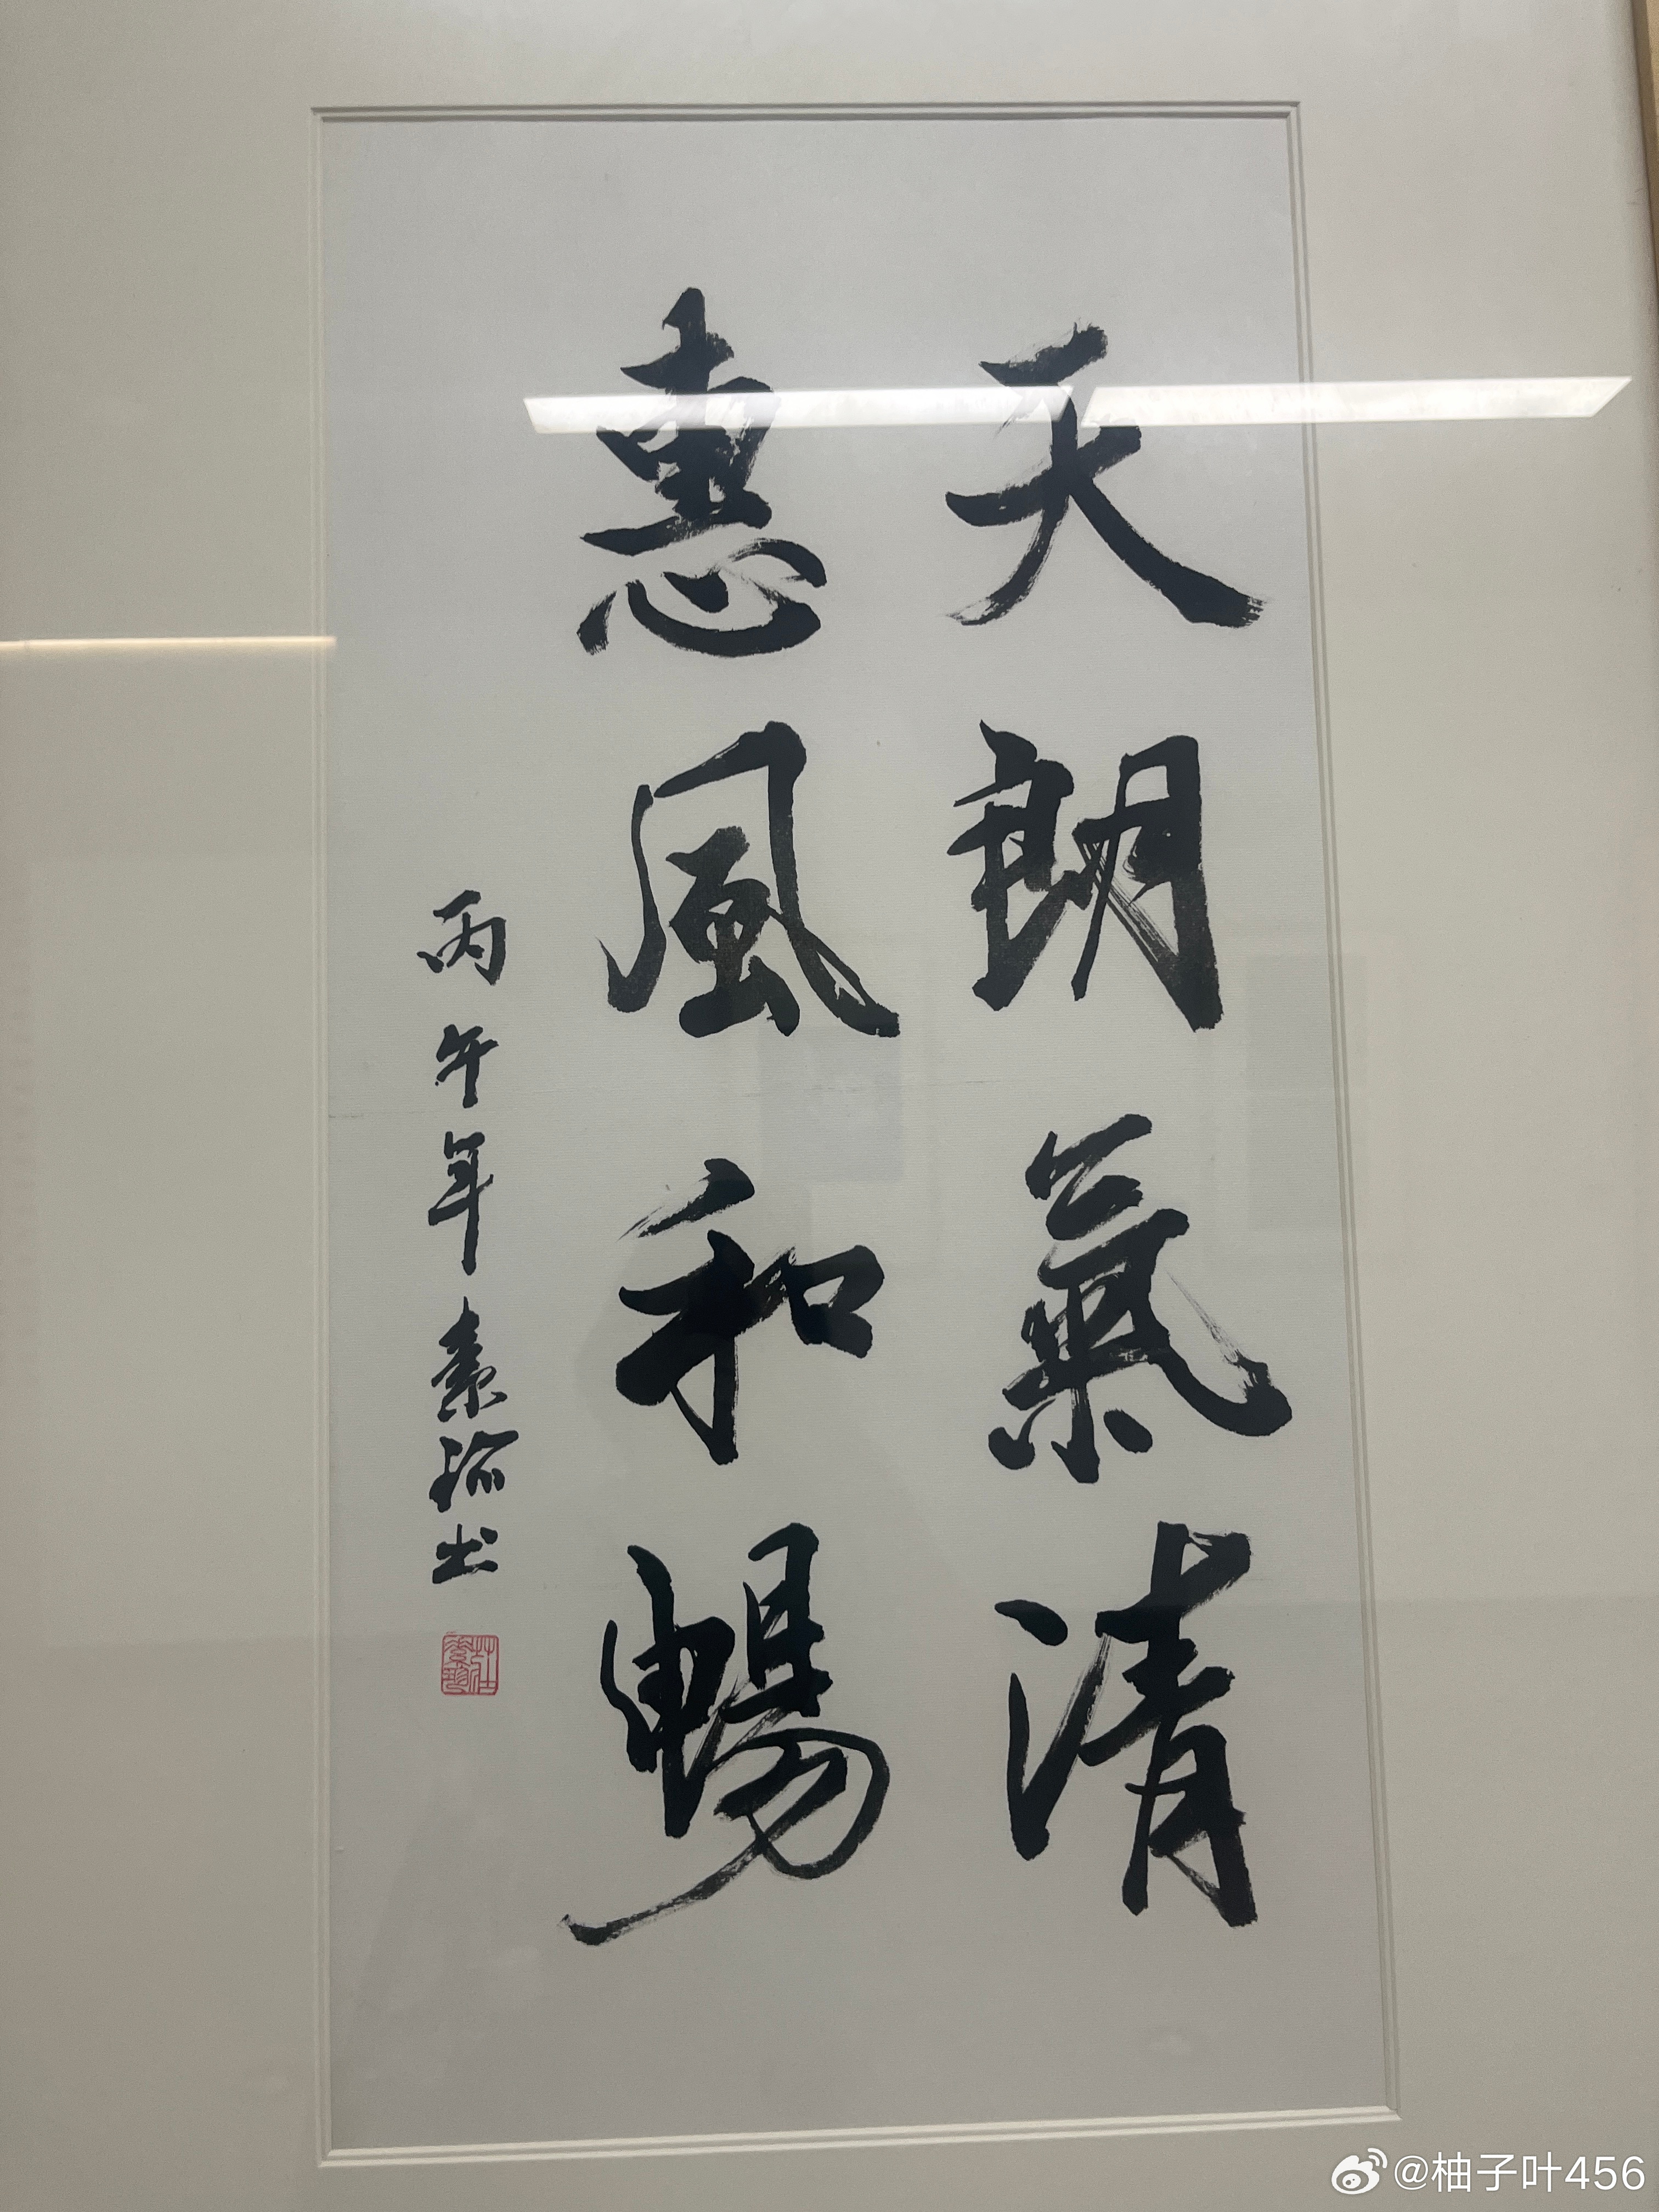 天朗氣清
惠風和暢
丙午年素珍书
@柚子叶456